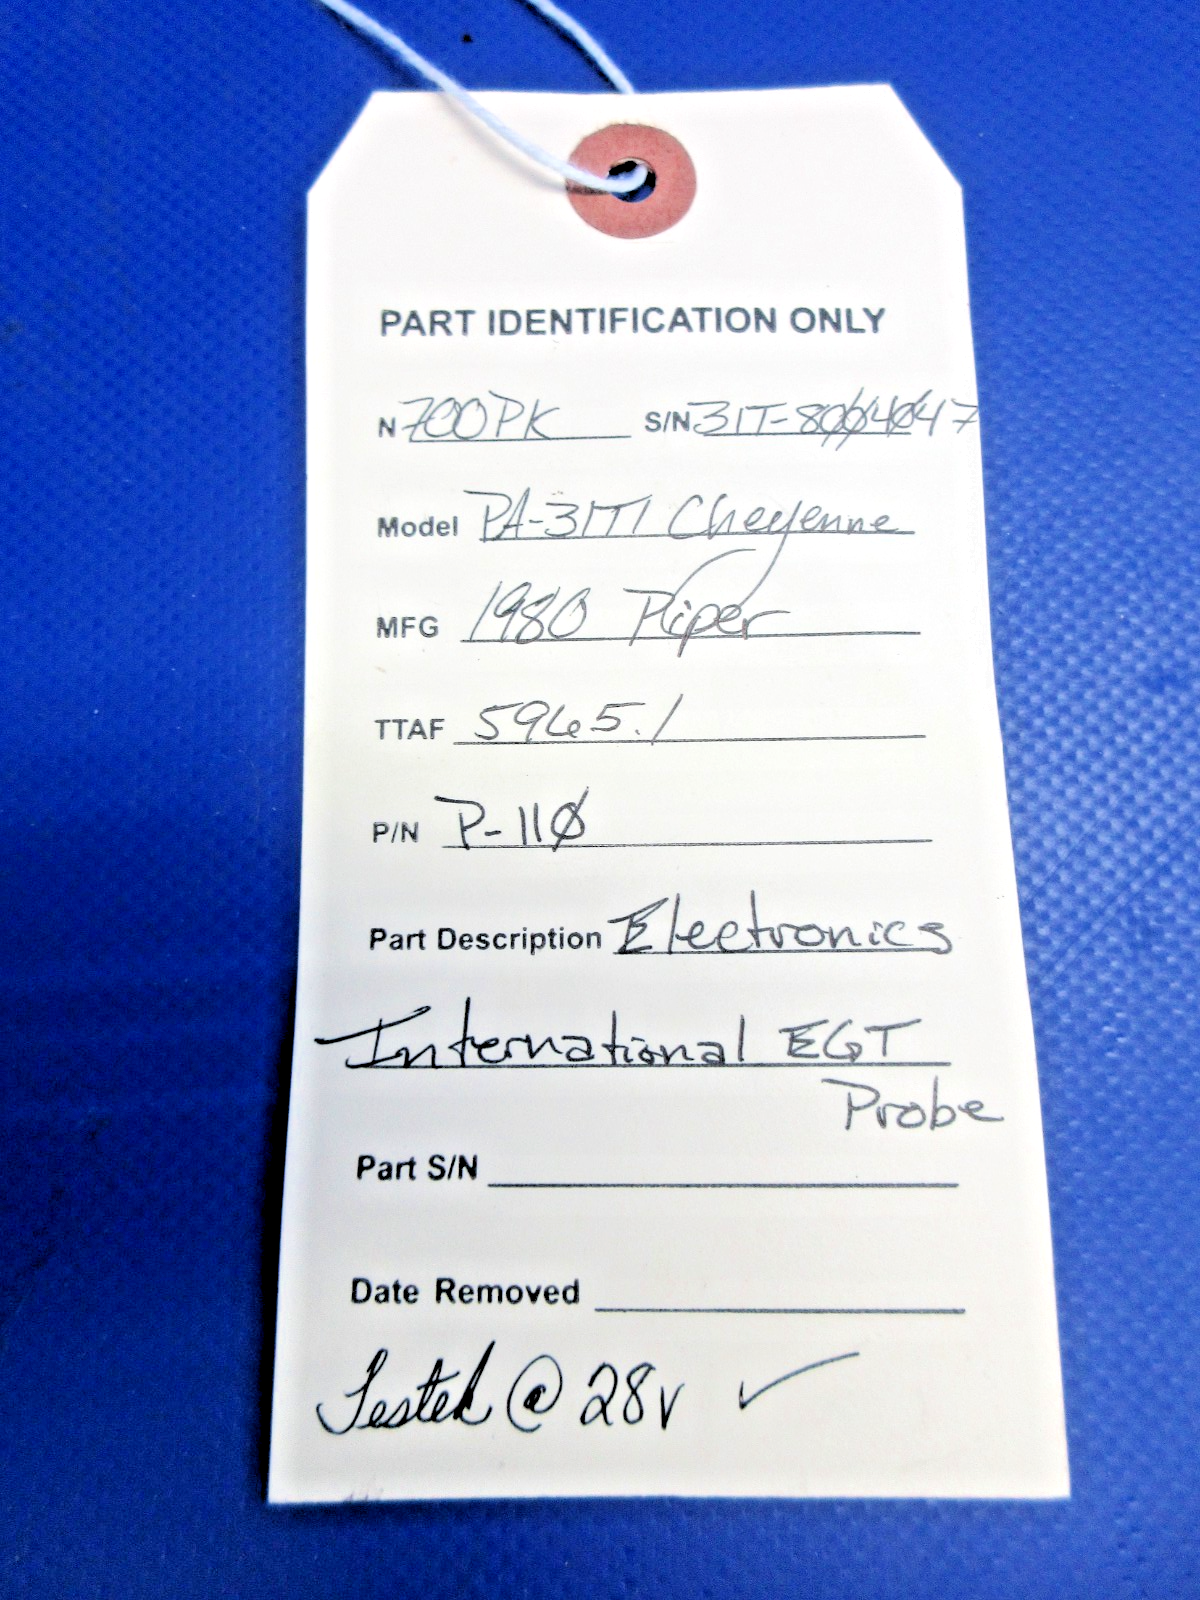 PART IDENTIFICATION ONLY
N 700PK S/N 31T-8004047
Model PA-31T1 Cheyenne
MFG 1980 Piper
TTAF 5965.1
P/N P-110
Part Description Electronics
International EGT
Probe
Part S/N
Date Removed
Tested @ 28v ✓